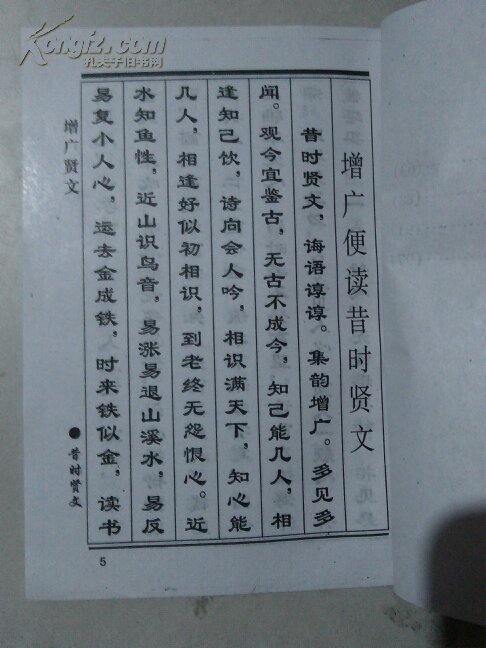 Kongfz.com
孔夫子旧书网
增广便读昔时贤文
昔时贤文，诲语谆谆。集韵增广。多见多
闻。观今宜鉴古，无古不成今，知己能几人，相
逢知己饮，诗向会人吟，相识满天下，知心能
几人，相逢好似初相识，到老终无怨恨心。近
水知鱼性，近山识鸟音，易涨易退山溪水，易反
易复小人心，运去金成铁，时来铁似金，读书
增广贤文
●昔时贤文
5